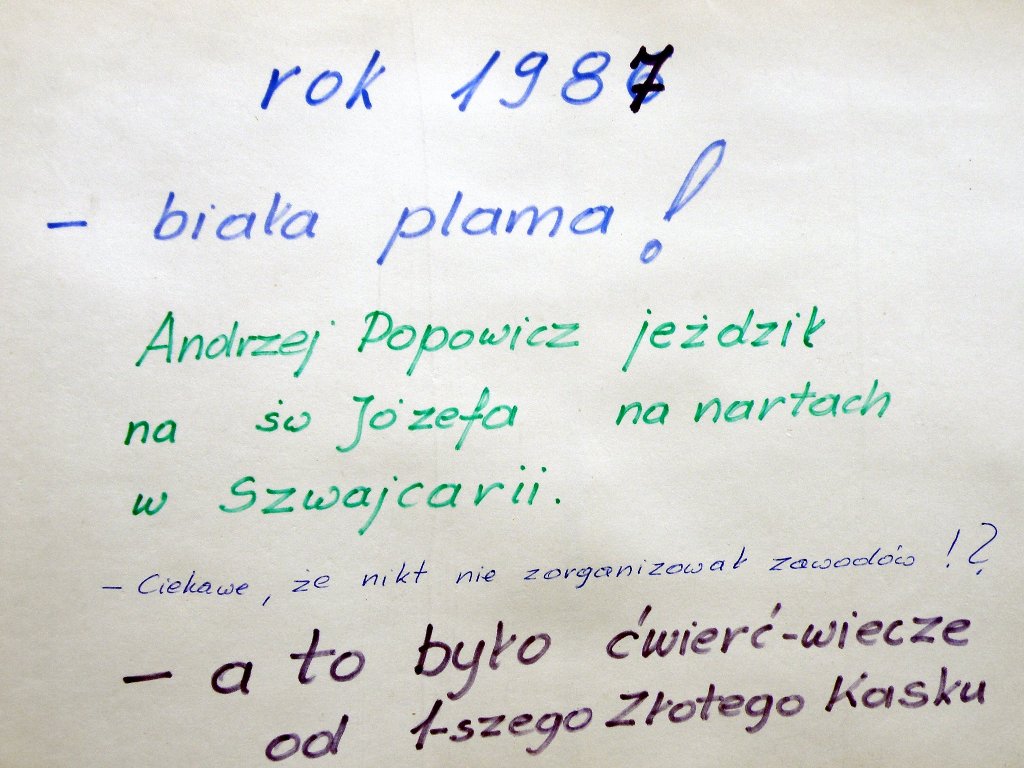 rok 1987
- biała plama!
Andrzej Popowicz jeździł
na św Józefa na nartach
w Szwajcarii.
- Ciekawe, że nikt nie zorganizował zawodów!?
- a to było ćwierć-wiecze
od 1-szego Złotego Kasku